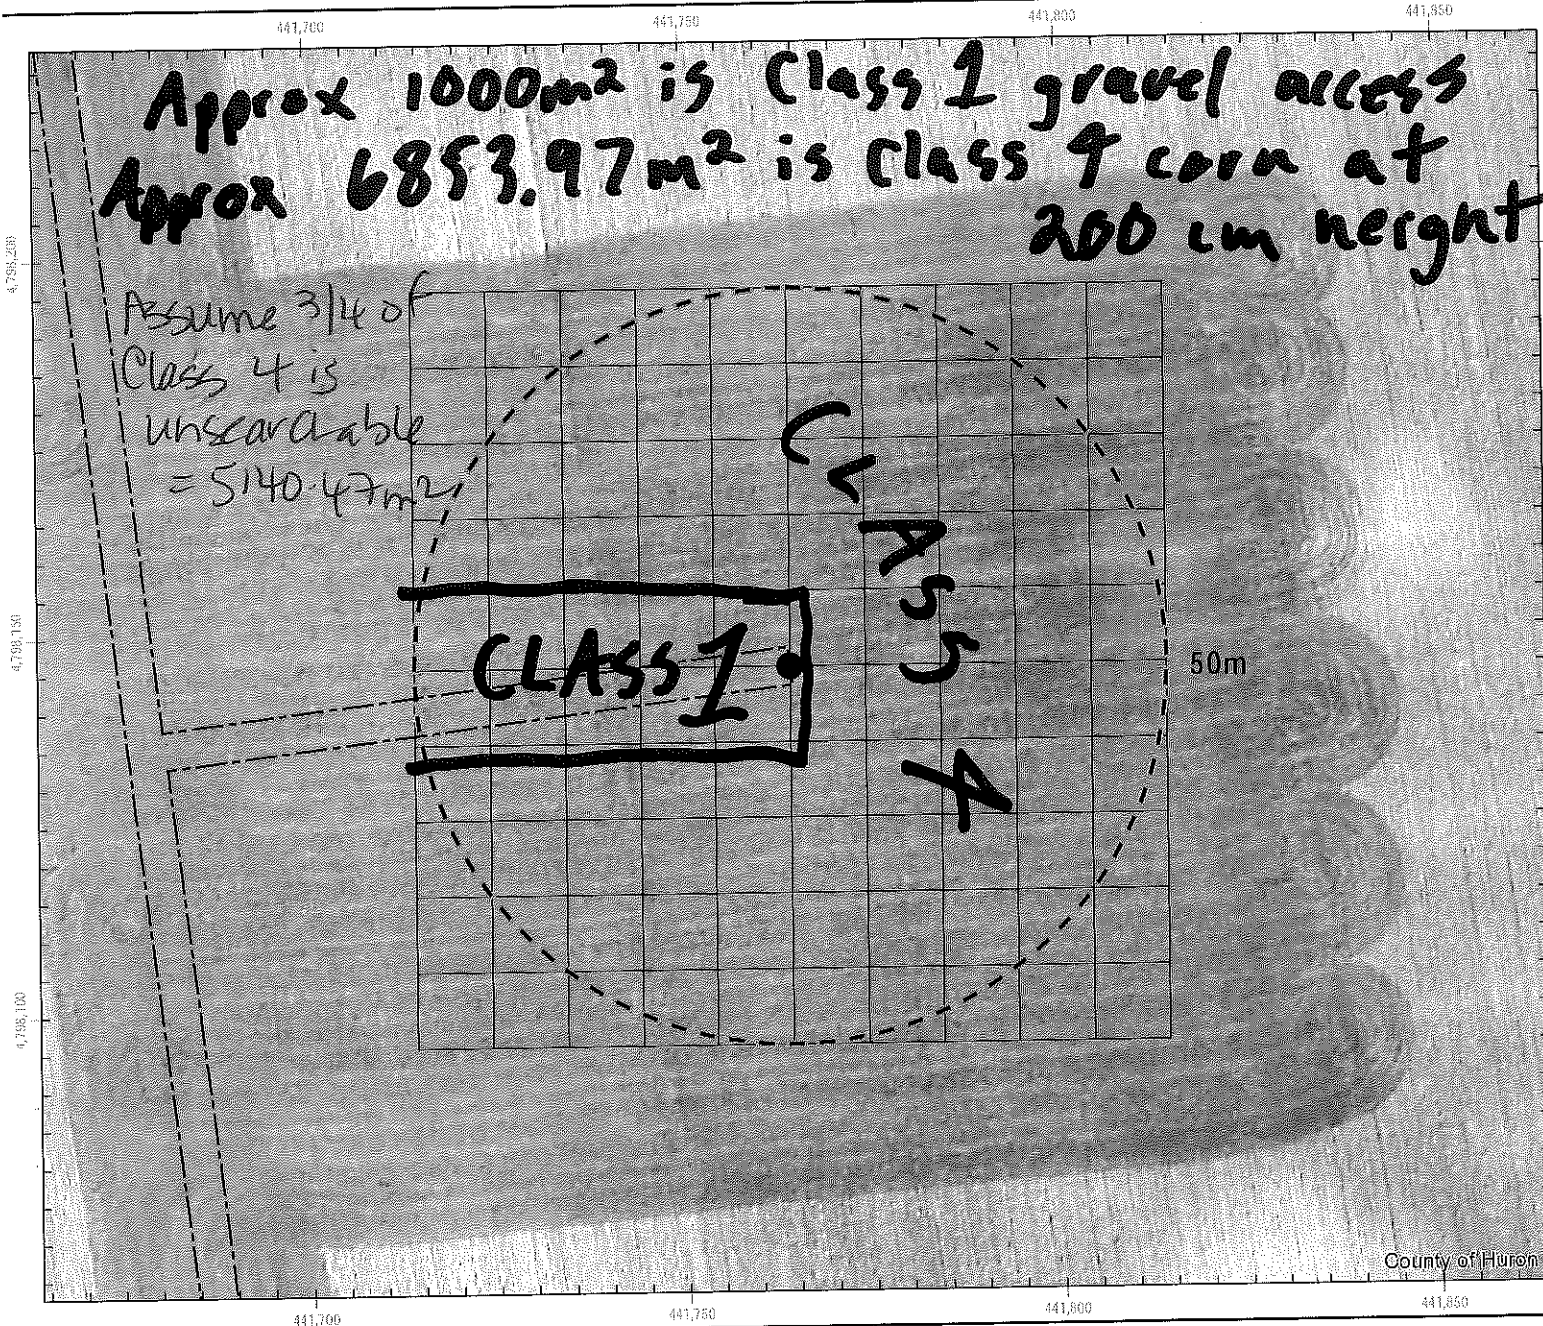 441,700 441,750 441,800 441,850
Approx 1000m² is Class 1 gravel access
Approx 6853.97m² is Class 4 corn at
200 cm height
4,798,200
Assume 3/4 of
Class 4 is
unsearchable
= 5140.47m²
CLASS 4
CLASS 1
4,798,150
50m
4,798,100
County of Huron
441,700 441,750 441,800 441,850